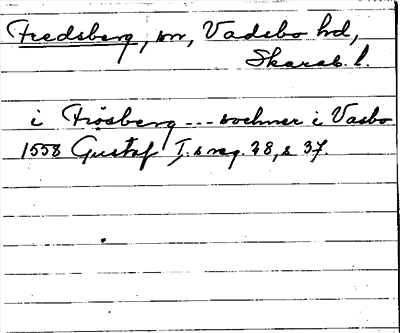 Fredsberg, sn, Vadsbo hd,
Skarab. l.
i Frösberg --- sochner i Vasbo
1558 Gustaf I:s reg. 28, s 37.